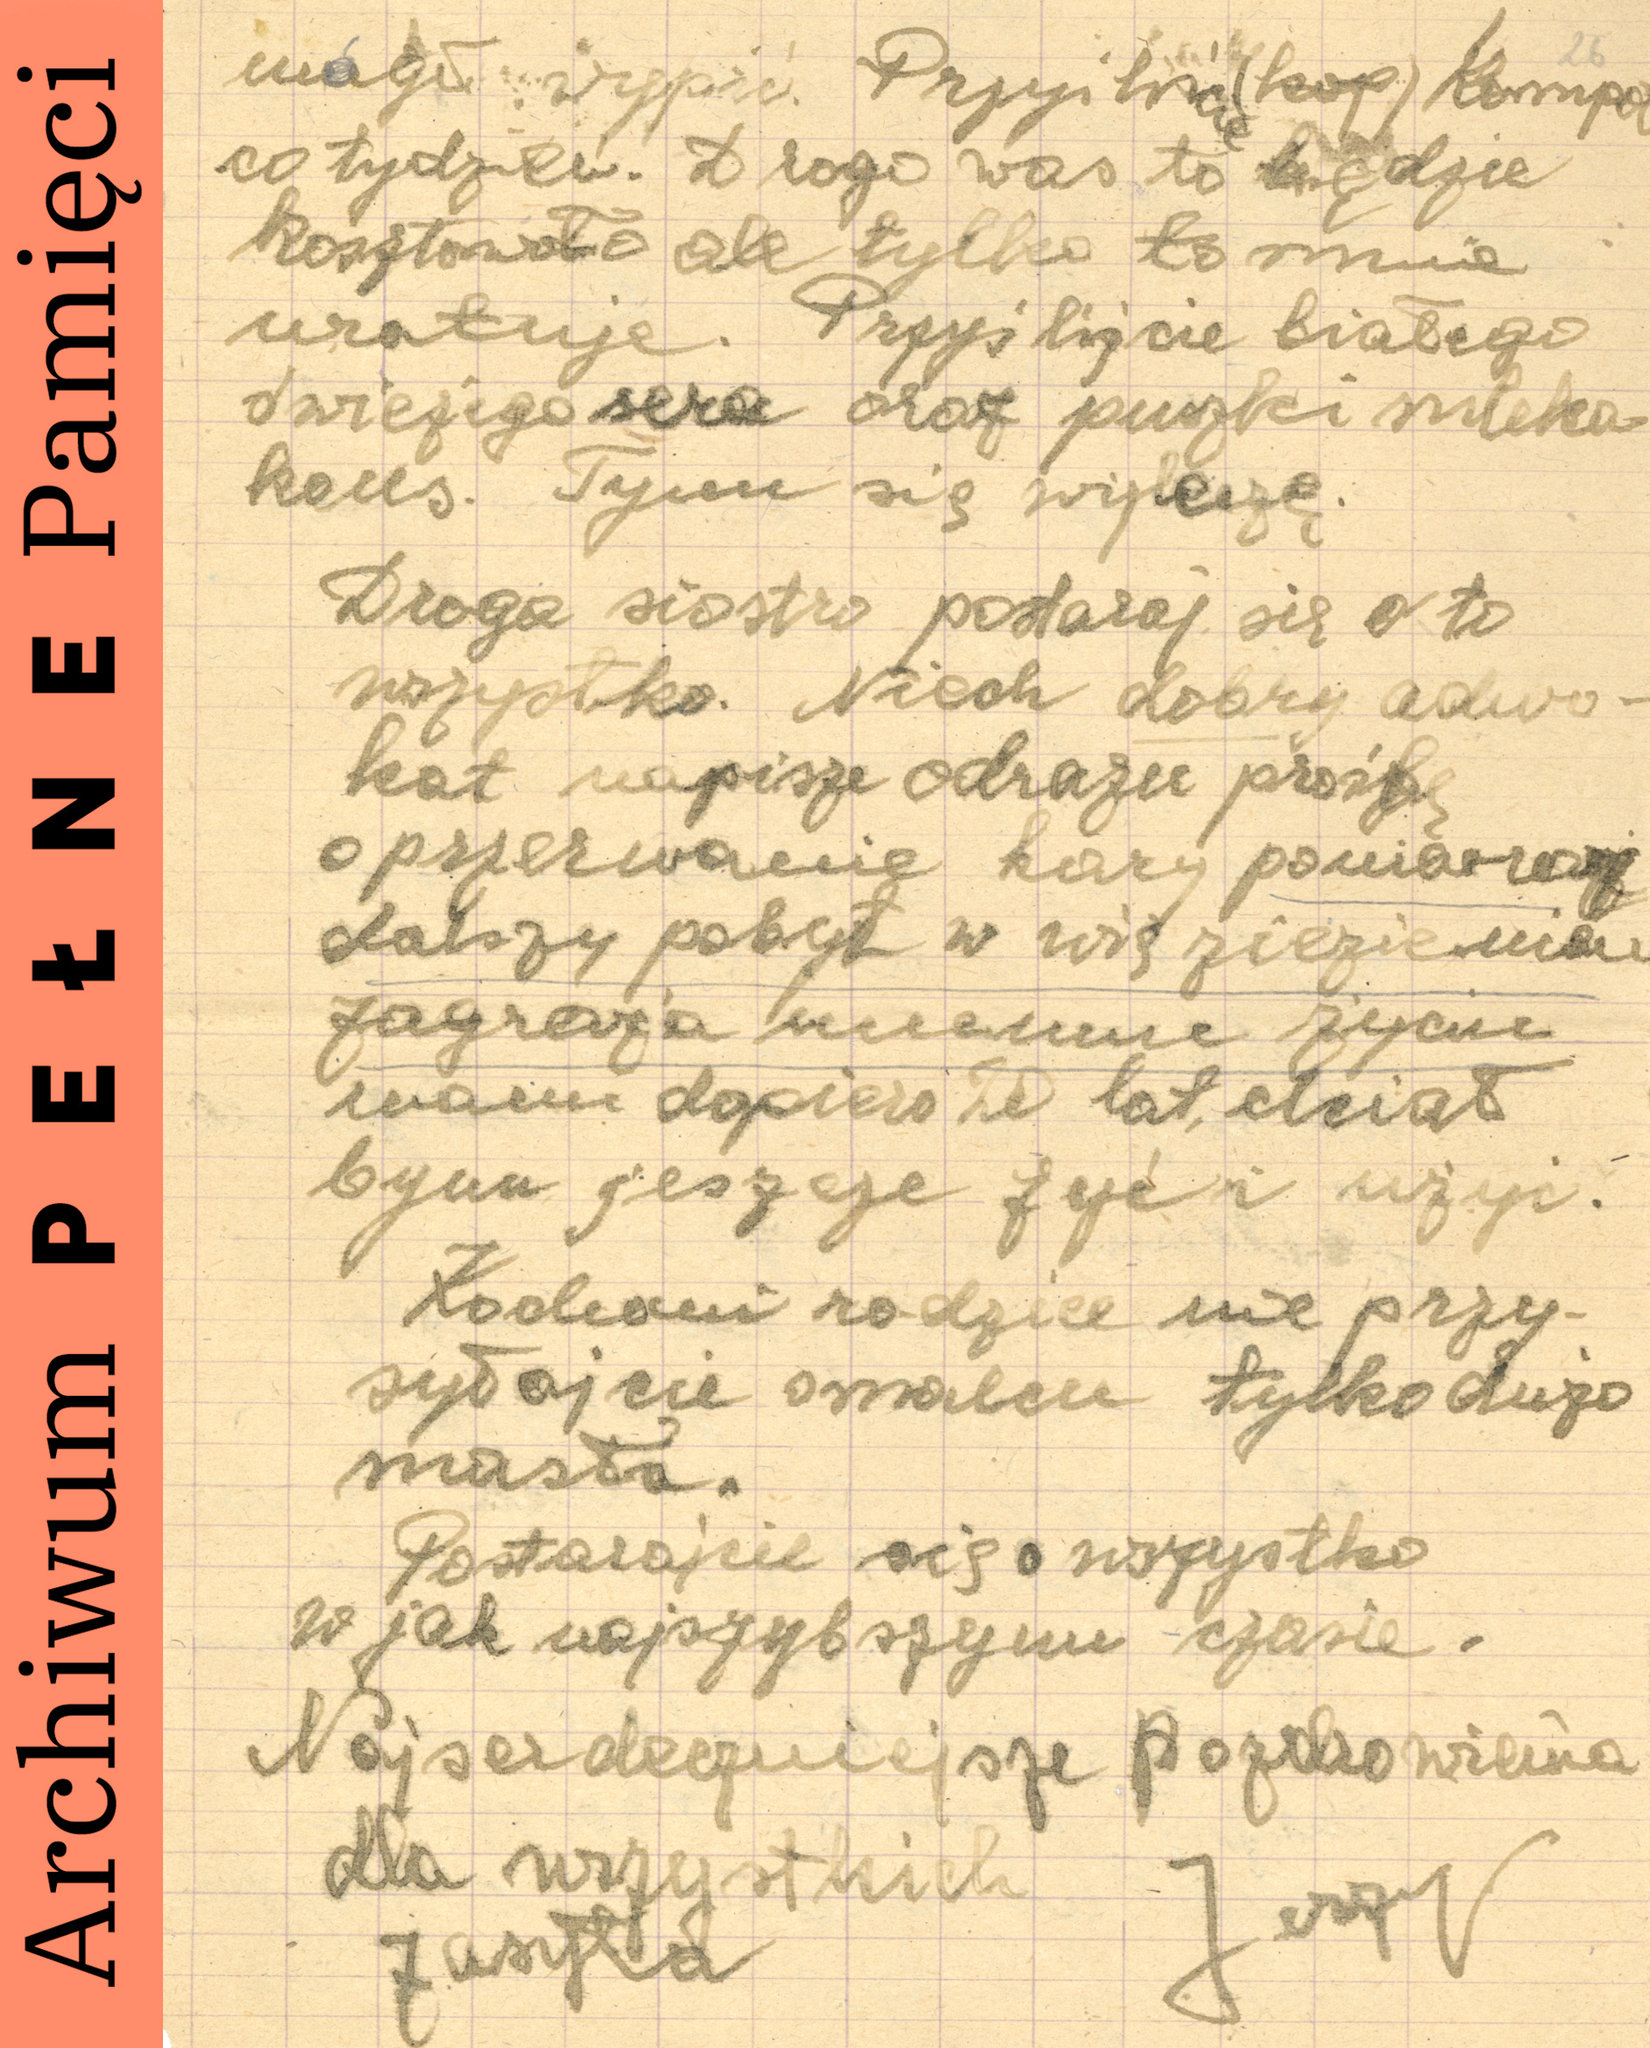 Archiwum PEŁNE Pamięci
26
mógł wypić. Przyślijcie (kop) Kompot
co tydzień. Drogo was to będzie
kosztowało ale tylko to mnie
uratuje. Przyślijcie białego
świeżego sera oraz puszki mleka
kons. Tym się wyleczę.
Droga siostro postaraj się o to
wszystko. Niech dobry adwo-
kat napisze odrazu prośbę
o przerwanie kary ponieważ
dalszy pobyt w więziezieniu
zagraża memu życiu
mam dopiero lat, chciał
bym jeszcze żyć i użyć.
Kochani rodzice nie przy-
syłajcie smalcu tylko dużo
masła.
Postarajcie się o wszystko
w jak najszybszym czasie.
Najserdeczniejsze Pozdrowienia
dla wszystkich
zasyła Jerzy